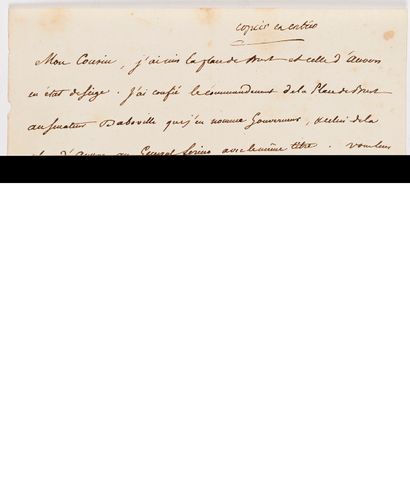 copiée en entier
Mon Cousin, j'ai mis la place de Brest et celle d'Anvers
en état de siège. J'ai confié le commandement de la Place de Brest
au senateur Daboville que j'en nomme Gouverneur, celui de la
d'Anvers au General avec le même titre.